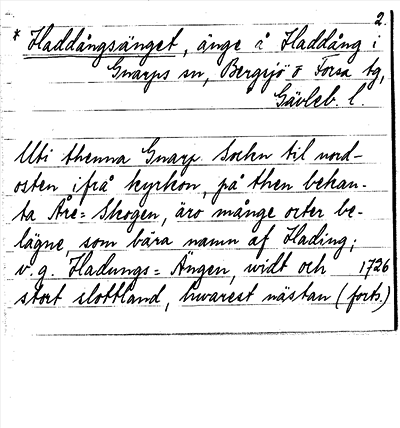 2.
* Haddångsänget, änge å Haddång i
Gnarps sn, Bergsjö o Forsa tg,
Gävleb. l.
Uti thenna Gnarp Sockn til nord-
osten ifrå kyrkon, på then bekan-
ta Åre=Skogen, äro månge orter be-
lägne, som bära namn af Hading;
v.g. Hadungs=Ängen, widt och 1726
stort slottland, hwarest nästan (forts.)